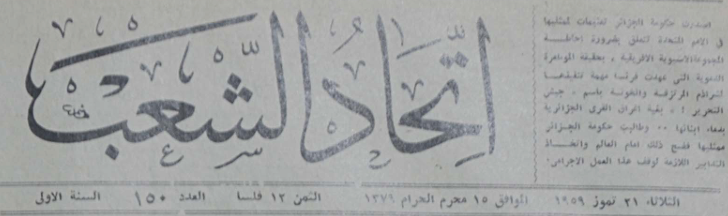 اتحاد الشعب
اصدرت حكومة الجزائر تعليمات لممثليها
في الامم المتحدة تتعلق بضرورة إحاطة
المجموعة الاسيوية الافريقية ، بحقيقة المؤامرة
الدموية التي عهدت فرنسا مهمة تنفيذها
باسم ، جيش
التحرير ! ، بغية اغراق القرى الجزائرية
بدماء ابنائها ٠٠ وطالبت حكومة الجزائر
ممثليها فضح ذلك امام العالم واتخاذ
التدابير اللازمة لوقف هذا العمل الاجرامي ٠
الثلاثاء ٢١ تموز ١٩٥٩ الموافق ١٥ محرم الحرام ١٣٧٩ الثمن ١٢ فلسا العدد ١٥٠ السنة الاولى